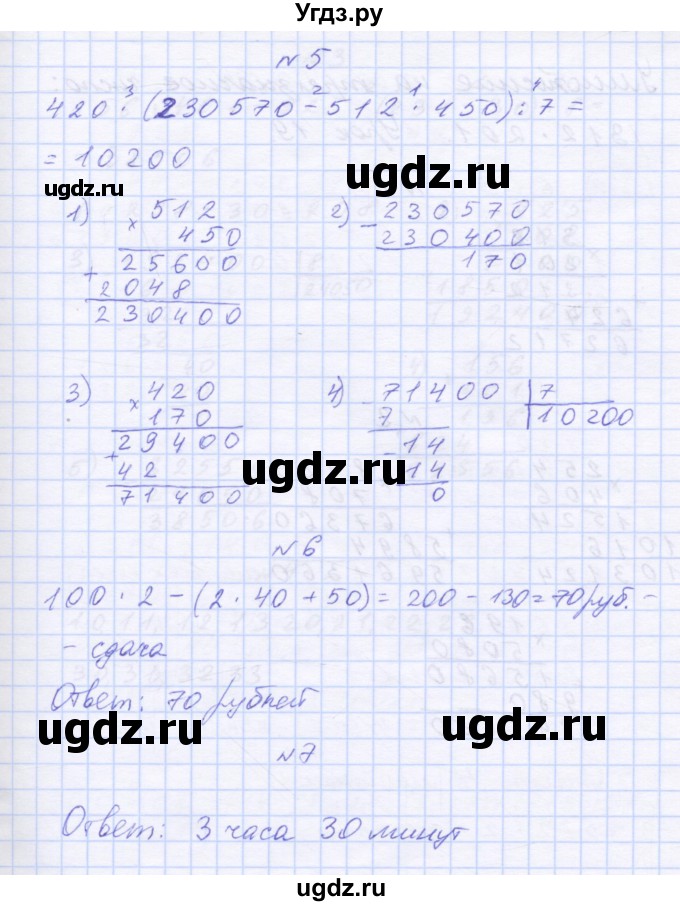 Угдз.ру
N5
420 · (230570 - 512 · 450) : 7 =
3 2 1 4
= 10200
ugdz.ru
ugdz.ru
1) × 512
450
+ 25600
2048
230400
2) - 230570
230400
170
3) × 420
170
+ 29400
42
71400
4) - 71400 | 7
7 10200
- 14
14
0
ugdz.ru
ugdz.ru
N6
100 · 2 - (2 · 40 + 50) = 200 - 130 = 70 руб. -
- сдача
Ответ: 70 рублей
ugdz.ru
ugdz.ru
N7
Ответ: 3 часа 30 минут
ugdz.ru
ugdz.ru